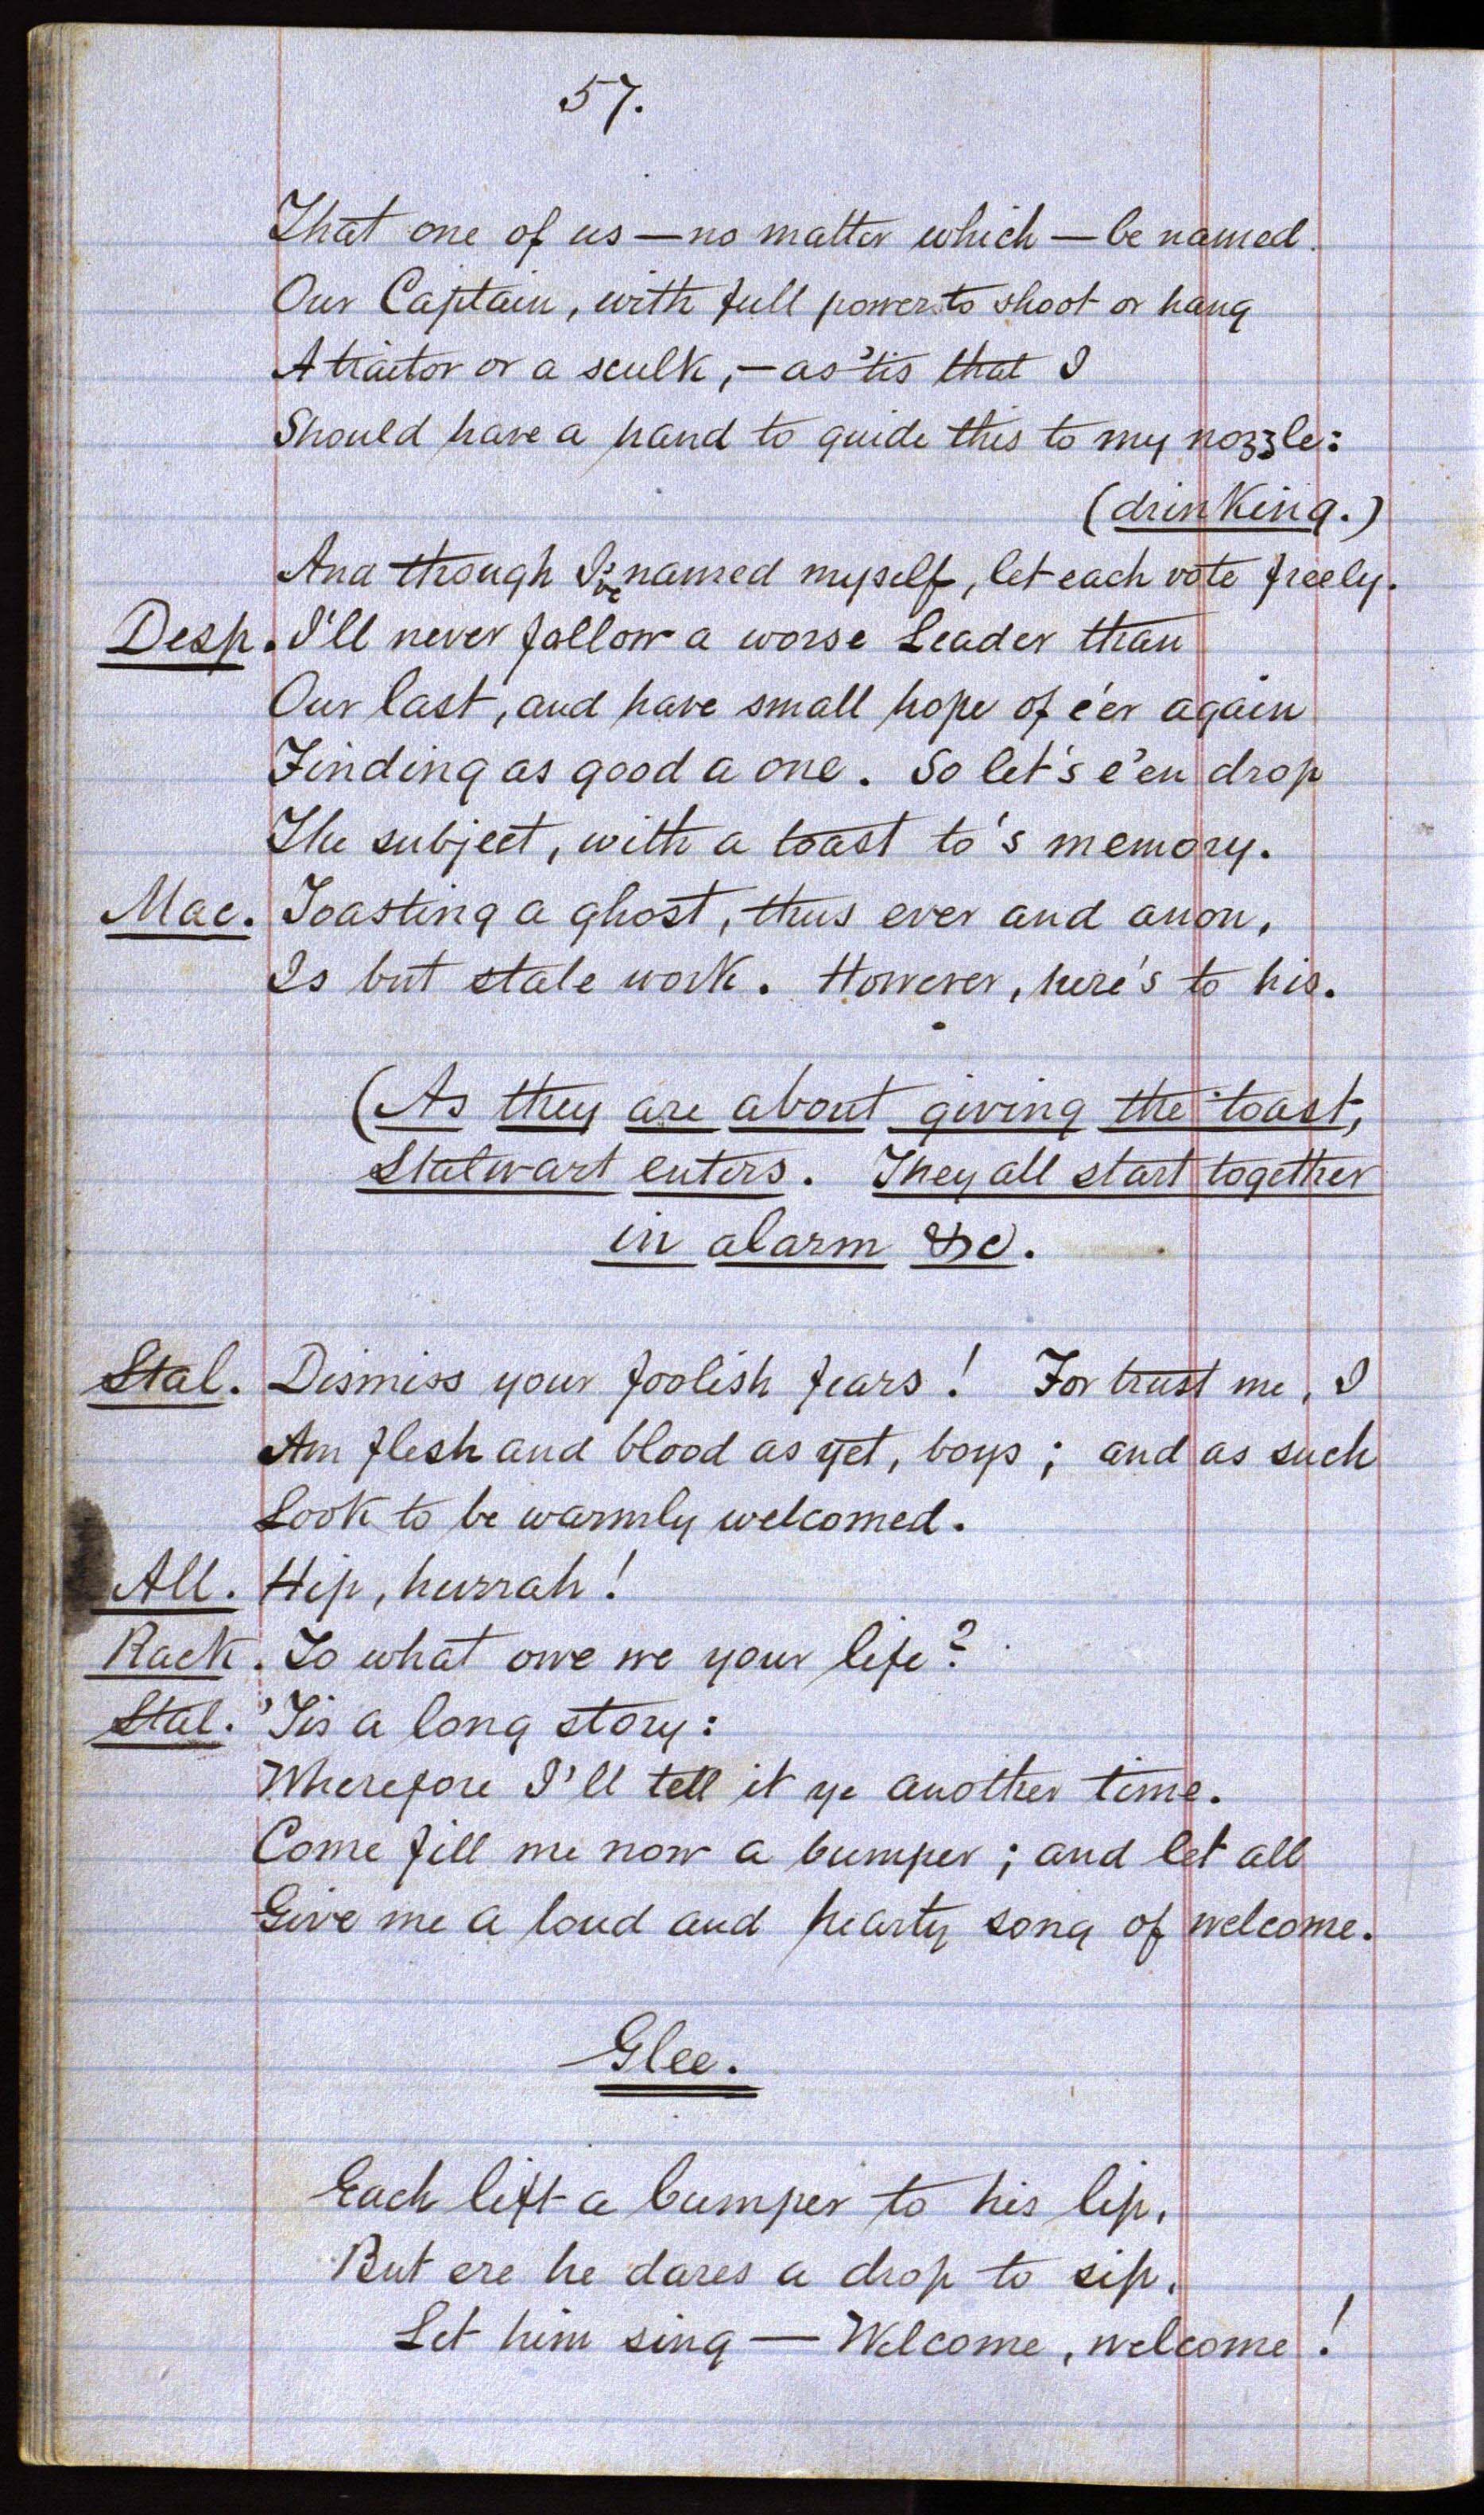 57.
That one of us — no matter which — be named
Our Captain, with full power to shoot or hang
A traitor or a sculk, — as 'tis that I
Should have a hand to guide this to my nozzle:
(drinking.)
And though I've named myself, let each vote freely.
Desp. I'll never follow a worse Leader than
Our last, and have small hope of e'er again
Finding as good a one. So let's e'en drop
The subject, with a toast to's memory.
Mac. Toasting a ghost, thus ever and anon,
Is but stale work. However, here's to his.
(As they are about giving the toast,
Stalwart enters. They all start together
in alarm &c.
Stal. Dismiss your foolish fears! For trust me, I
Am flesh and blood as yet, boys; and as such
Look to be warmly welcomed.
All. Hip, hurrah!
Rack. To what owe we your life?
Stal. 'Tis a long story:
Wherefore I'll tell it ye another time.
Come fill me now a bumper; and let all
Give me a loud and hearty song of welcome.
Glee.
Each lift a bumper to his lip,
But ere he dares a drop to sip,
Let him sing — Welcome, welcome!